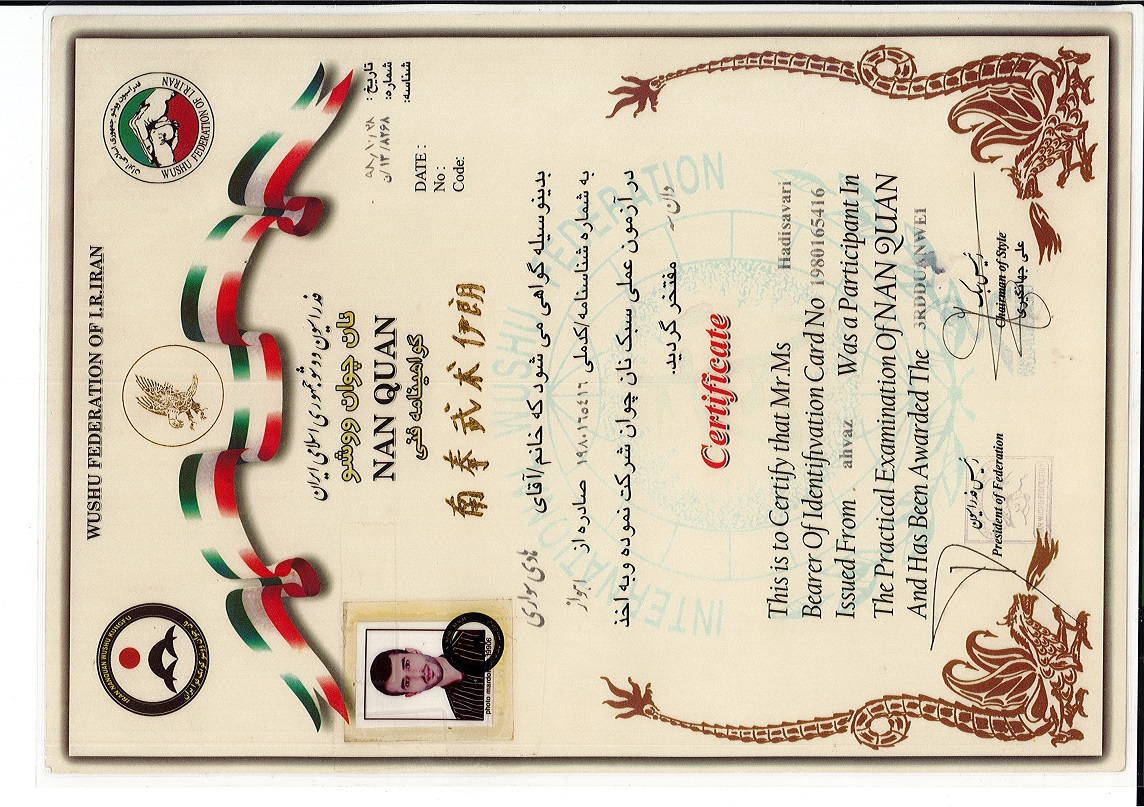 WUSHU FEDERATION OF I.R.IRAN
WUSHU FEDERATION OF I.R.IRAN
فدراسیون ووشو جمهوری اسلامی ایران
IRAN NANQUAN WUSHU KUNGFU
فدراسیون ووشو جمهوری اسلامی ایران
نان چوان ووشو
NAN QUAN
گواهینامه فنی
南拳武术伊朗
تاریخ :
شماره: ۱۳/۸۲۶۸/ن
شناسه:
DATE :
No :
Code:
photo mardo
بدینوسیله گواهی می شود که خانم/آقای هادی سواری
به شماره شناسنامه/کدملی ۱۹۸۰۱۶۵۴۱۶ صادره از اهواز
در آزمون عملی سبک نان چوان شرکت نموده و به اخذ
دان مفتخر گردید.
INTERNATIONAL WUSHU FEDERATION
Certificate
This is to Certify that Mr.Ms Hadisavari
Bearer Of Identifivation Card No 1980165416
Issued From ahvaz Was a Participant In
The Practical Examination Of NAN QUAN
And Has Been Awarded The 3RDDUANWEI
رئیس فدراسیون
President of Federation
رئیس سبک
Chairman of Style
علی جهانگیری